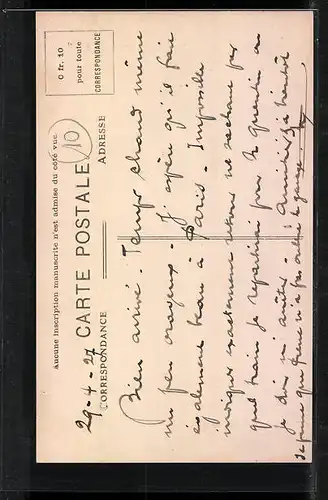 Aucune inscription manuscrite n'est admise du côté vue.
CARTE POSTALE
CORRESPONDANCE
ADRESSE
0 fr. 10
pour toute
CORRESPONDANCE
10
29-4-27
Bien arrivé. Temps chaud même
un peu orageux. J'espère qu'il fait
également beau à Paris. Impossible
indiquer exactement retour ne sachant par
quel train je repartirai
je dois m'arrêter. Amitiés à bientôt